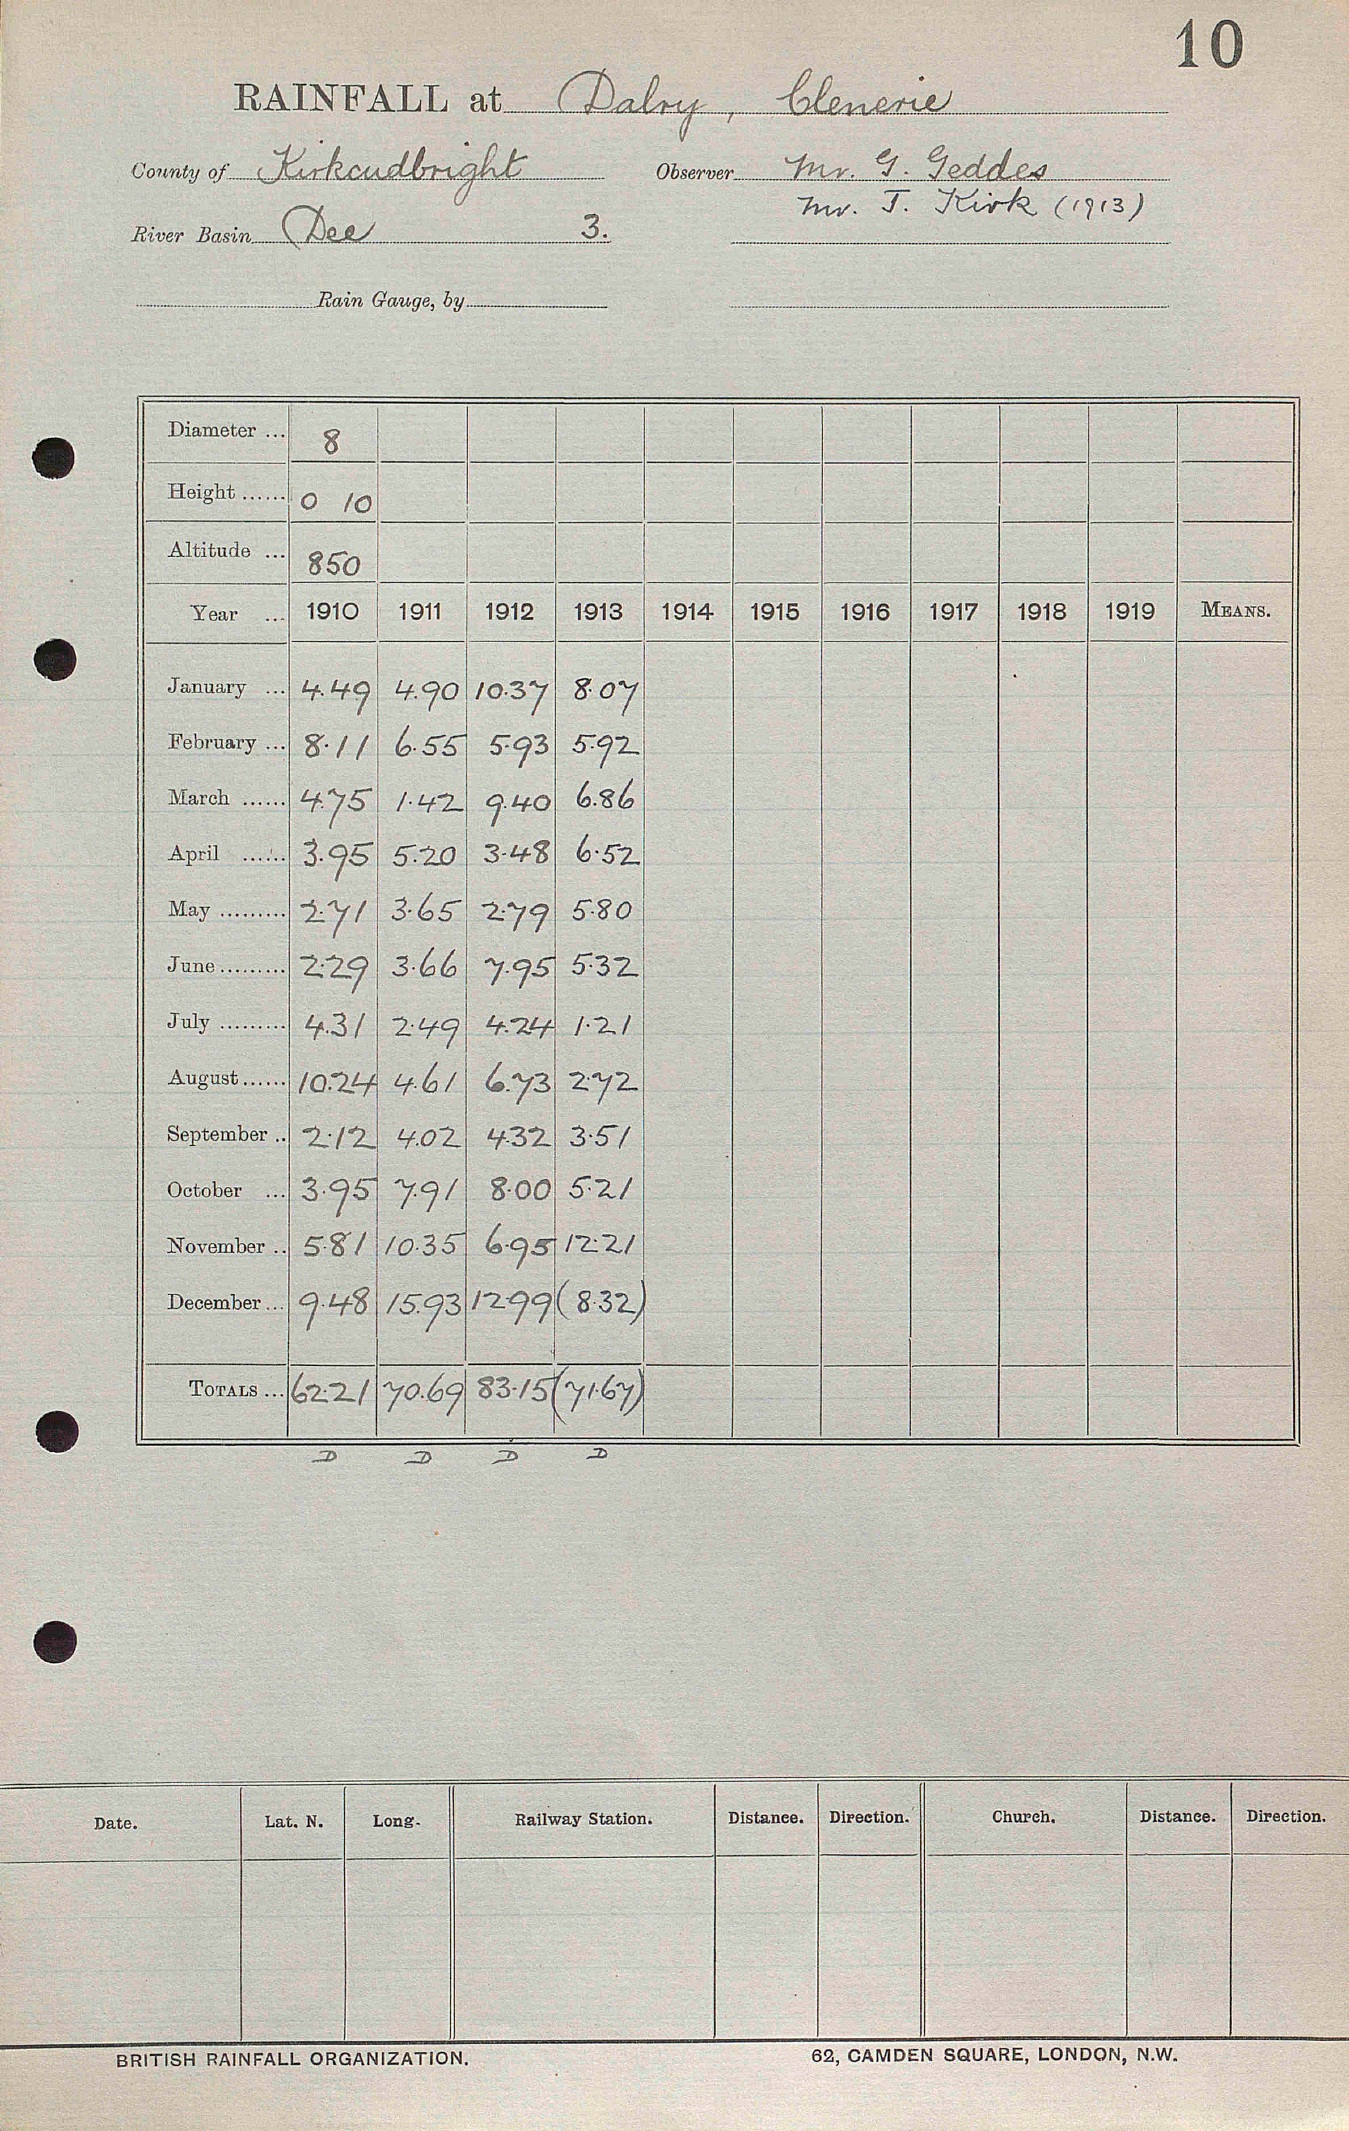 10
RAINFALL at Dalry, Clenerie
County of Kirkcudbright Observer Mr. G. Geddes
Mr. T. Kirk (1913)
River Basin Dee 3.
Rain Gauge, by
Diameter ... 8
Height ...... 0 10
Altitude ... 850
Year ... 1910 1911 1912 1913 1914 1915 1916 1917 1918 1919 MEANS.
January ... 4.49 4.90 10.37 8.07
February ... 8.11 6.55 5.93 5.92
March ...... 4.75 1.42 9.40 6.86
April ...... 3.95 5.20 3.48 6.52
May ......... 2.71 3.65 2.79 5.80
June ......... 2.29 3.66 7.95 5.32
July ......... 4.31 2.49 4.24 1.21
August ...... 10.24 4.61 6.73 2.72
September .. 2.12 4.02 4.32 3.51
October ... 3.95 7.91 8.00 5.21
November .. 5.81 10.35 6.95 12.21
December ... 9.48 15.93 12.99 (8.32)
TOTALS ... 62.21 70.69 83.15 (71.67)
D D D D
Date. Lat. N. Long. Railway Station. Distance. Direction. Church. Distance. Direction.
BRITISH RAINFALL ORGANIZATION. 62, CAMDEN SQUARE, LONDON, N.W.